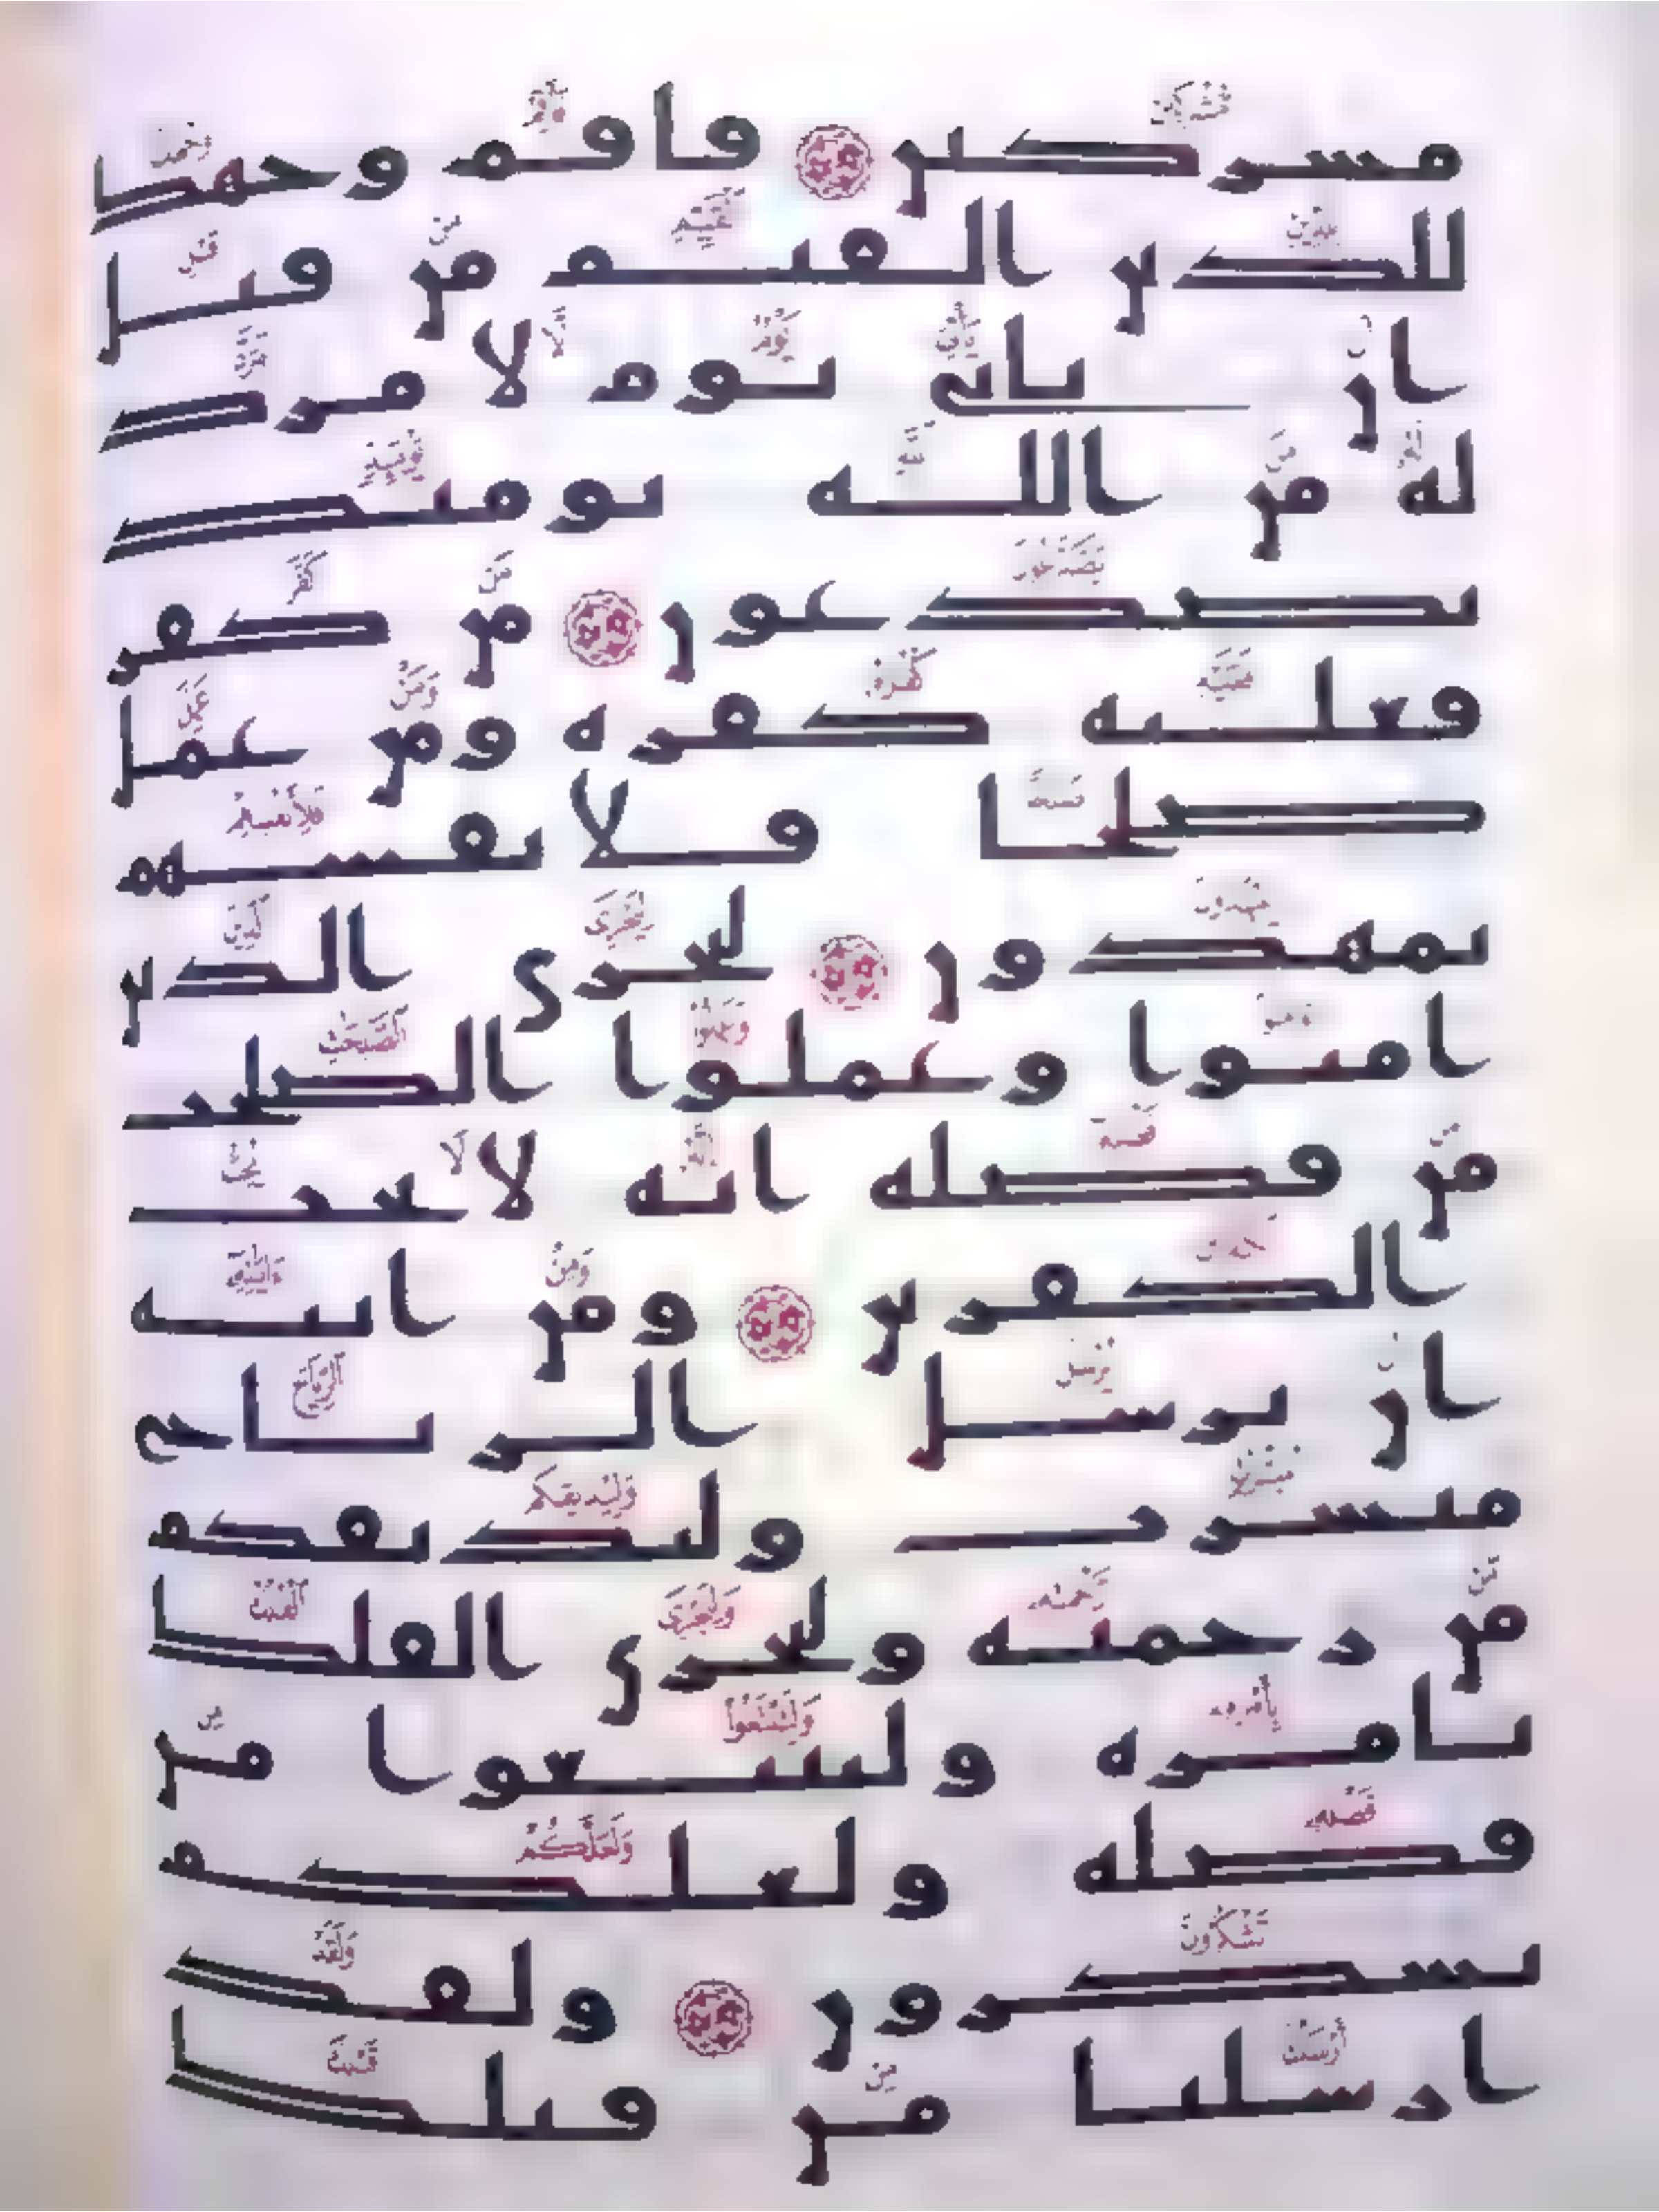 مشركين فاقم وجهك
للدين القيم من قبل
ان ياتي يوم لا مرد
له من الله يومئذ
يصدعون من كفر
فعليه كفره ومن عمل
صلحا فلانفسهم
يمهدون ليجزي الذين
امنوا وعملوا الصلحت
من فضله انه لا يحب
الكفرين ومن ايته
ان يرسل الرياح
مبشرت وليذيقكم
من رحمته ولتجري الفلك
بامره ولتبتغوا من
فضله ولعلكم
تشكرون ولقد
ارسلنا من قبلك